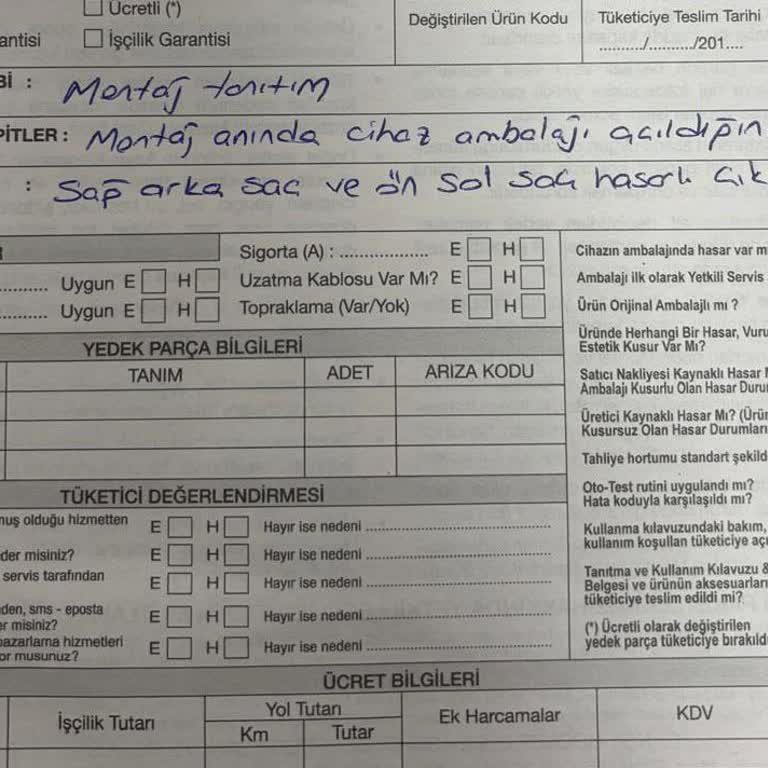 Ücretli (*)
antisi İşçilik Garantisi
Değiştirilen Ürün Kodu
Tüketiciye Teslim Tarihi
........../........../201....
Bİ : Montaj tanıtım
PİTLER : Montaj anında cihaz ambalajı açıldığın
: Sağ arka sac ve ön sol sac hasarlı çık
R
Sigorta (A) : .................. E H
.......... Uygun E H Uzatma Kablosu Var Mı? E H
.......... Uygun E H Topraklama (Var/Yok) E H
YEDEK PARÇA BİLGİLERİ
TANIM ADET ARIZA KODU
TÜKETİCİ DEĞERLENDİRMESİ
muş olduğu hizmetten E H Hayır ise nedeni ..................
der misiniz? E H Hayır ise nedeni ..................
servis tarafından E H Hayır ise nedeni ..................
den, sms - eposta
er misiniz? E H Hayır ise nedeni ..................
pazarlama hizmetleri
or musunuz? E H Hayır ise nedeni ..................
Cihazın ambalajında hasar var m
Ambalajı ilk olarak Yetkili Servis
Ürün Orijinal Ambalajlı mı ?
Üründe Herhangi Bir Hasar, Vuru
Estetik Kusur Var Mı?
Satıcı Nakliyesi Kaynaklı Hasar M
Ambalajı Kusurlu Olan Hasar Durum
Üretici Kaynaklı Hasar Mı? (Ürün
Kusursuz Olan Hasar Durumları
Tahliye hortumu standart şekild
Oto-Test rutini uygulandı mı?
Hata koduyla karşılaşıldı mı?
Kullanma kılavuzundaki bakım,
kullanım koşulları tüketiciye açı
Tanıtma ve Kullanım Kılavuzu &
Belgesi ve ürünün aksesuarları
tüketiciye teslim edildi mi?
(*) Ücretli olarak değiştirilen
yedek parça tüketiciye bırakıld
ÜCRET BİLGİLERİ
İşçilik Tutarı
Yol Tutarı
Km Tutar
Ek Harcamalar
KDV